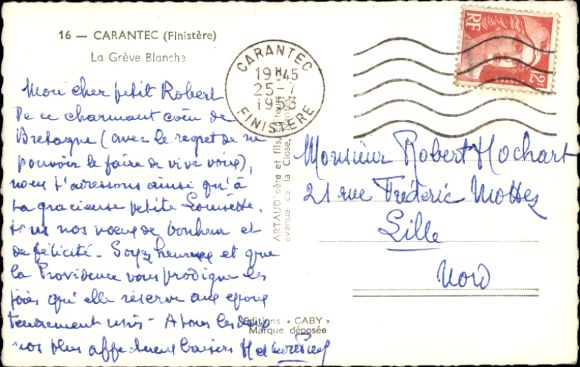 16 — CARANTEC (Finistère)
La Grève Blanche
Mon cher petit Robert
De ce charmant coin de
Bretagne (avec le regret de ne
pouvoir le faire de vive voix),
nous t'adressons ainsi qu'à
ta gracieuse petite
nos vœux de bonheur et
de félicité. Soyez heureux et que
la Providence vous prodigue les
joies qu'elle réserve aux époux
tendrement unis - A tous les deux
nos plus affectueux baisers
CARANTEC
19H45
25-7
1953
FINISTÈRE
RF
ARTAUD père et fils,
avenue de la Close,
Editions "GABY"
Marque déposée
Monsieur Robert Hochart
21 rue Frédéric Mottez
Lille
Nord